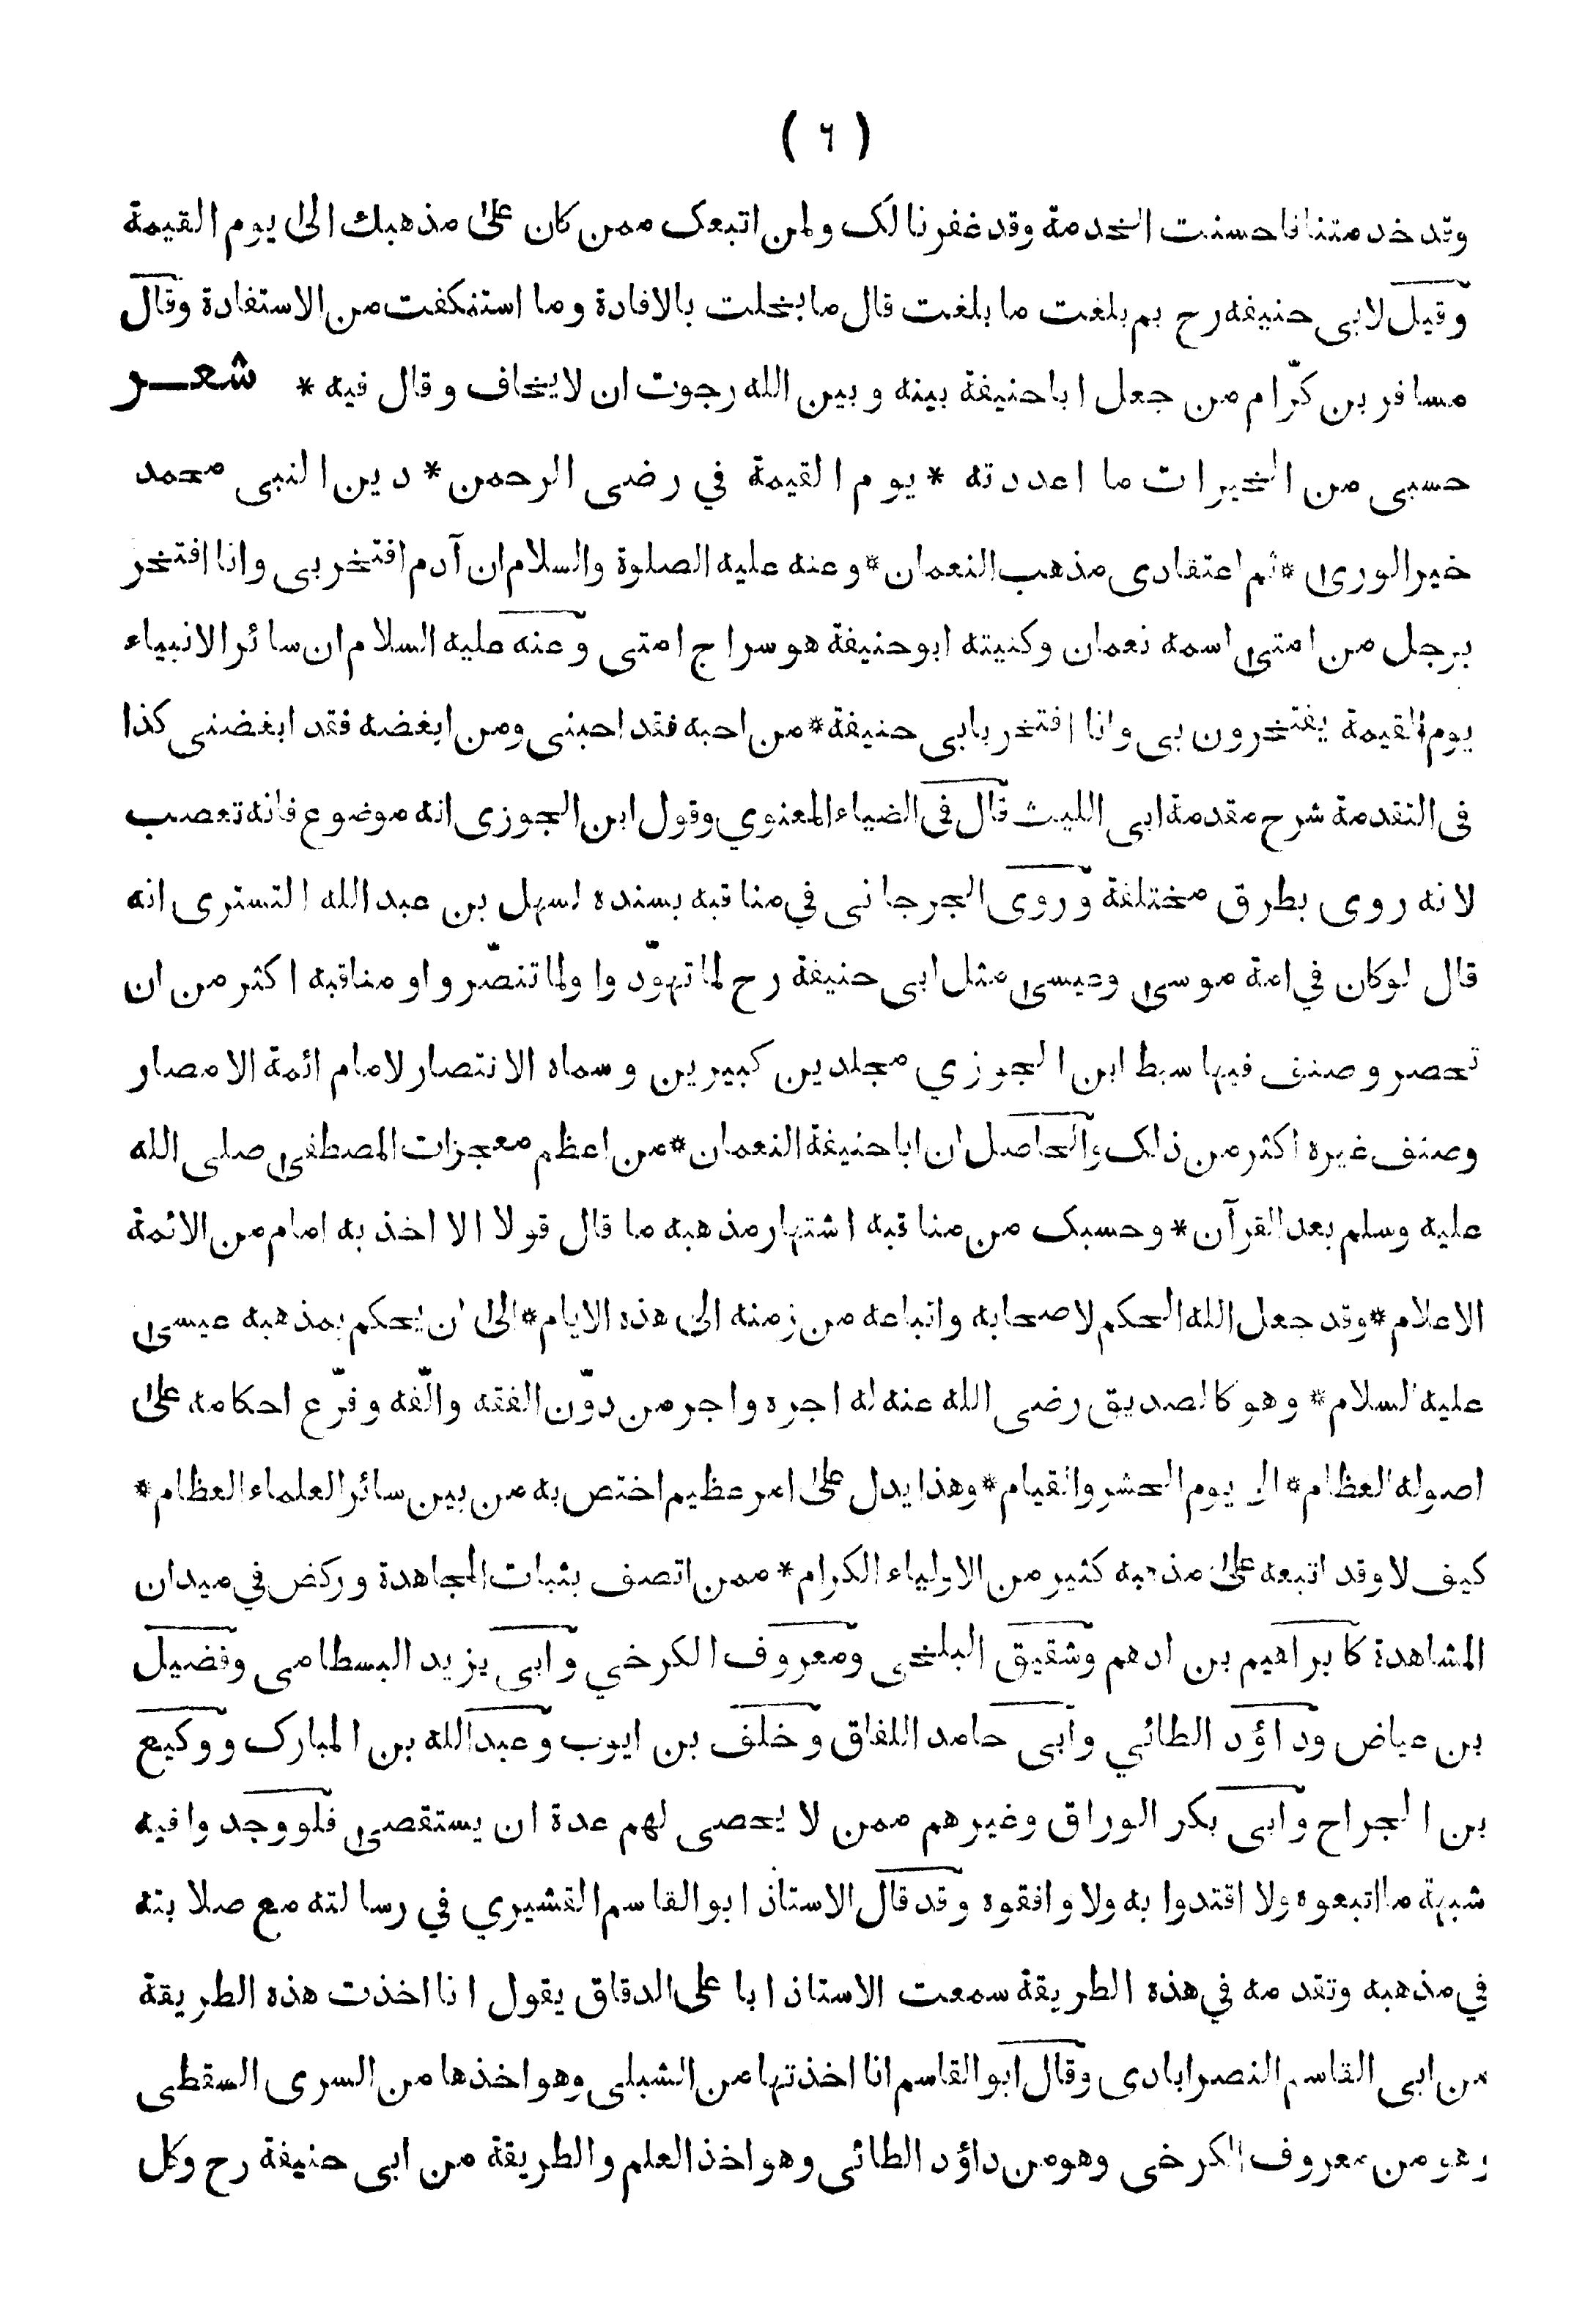 ( ٦ )
وقد خدمتنا فاحسنت الخدمة وقد غفرنا لك ولمن اتبعك ممن كان على مذهبك الى يوم القيمة
وقيل لابى حنيفه رح بم بلغت ما بلغت قال ما بخلت بالافادة وما استنكفت من الاستفادة وقال
مسافر بن كرّام من جعل اباحنيفة بينه و بين الله رجوت ان لايخاف و قال فيه * شعـــر
حسبى من الخيرات ما اعددته * يوم القيمة في رضى الرحمن * دين النبى محمد
خير الورى * ثم اعتقادى مذهب النعمان * وعنه عليه الصلوة والسلام ان آدم افتخر بى وانا افتخر
برجل من امتى اسمه نعمان وكنيته ابو حنيفة هو سراج امتى وعنه عليه السلام ان سائر الانبياء
يوم القيمة يفتخرون بى وانا افتخر بابى حنيفة * من احبه فقد احبنى ومن ابغضه فقد ابغضنى كذا
فى التقدمة شرح مقدمة ابى الليث قال فى الضياء المعنوي وقول ابن الجوزى انه موضوع فانه تعصب
لانه روى بطرق مختلفة وروى الجرجانى في مناقبه بسنده لسهل بن عبد الله التسترى انه
قال لوكان في امة موسى وعيسى مثل ابى حنيفة رح لما تهوّدوا ولما تنصّروا و مناقبه اكثر من ان
تحصر و صنف فيها سبط ابن الجوزي مجلدين كبيرين و سماه الانتصار لامام ائمة الامصار
وصنف غيره اكثر من ذلك والحاصل ان اباحنيفة النعمان * من اعظم معجزات المصطفى صلى الله
عليه وسلم بعد القرآن * وحسبك من مناقبه اشتهار مذهبه ما قال قولا الا اخذ به امام من الائمة
الاعلام * وقد جعل الله الحكم لاصحابه واتباعه من زمنه الى هذه الايام * الى ان يحكم بمذهبه عيسى
عليه السلام * وهو كالصديق رضى الله عنه له اجره واجر من دوّن الفقه والّفه و فرّع احكامه على
اصوله العظام * الى يوم الحشر والقيام * وهذا يدل على امر عظيم اختص به من بين سائر العلماء العظام *
كيف لا وقد اتبعه على مذهبه كثير من الاولياء الكرام * ممن اتصف بثبات المجاهدة و ركض في ميدان
المشاهدة كابراهيم بن ادهم وشقيق البلخى ومعروف الكرخي وابى يزيد البسطامى وفضيل
بن عياض وداؤد الطائي وابى حامد اللفاق وخلف بن ايوب وعبدالله بن المبارك ووكيع
بن الجراح وابى بكر الوراق وغيرهم ممن لا يحصى لهم عدة ان يستقصى فلو وجدوا فيه
شبهة ما اتبعوه ولا اقتدوا به ولا وافقوه وقد قال الاستاذ ابو القاسم القشيري في رسالته مع صلابته
في مذهبه وتقدمه في هذه الطريقة سمعت الاستاذ ابا على الدقاق يقول انا اخذت هذه الطريقة
من ابى القاسم النصرابادى وقال ابو القاسم انا اخذتها من الشبلى وهو اخذها من السرى السقطى
وهو من معروف الكرخى وهو من داؤد الطائى وهو اخذ العلم والطريقة من ابى حنيفة رح وكل